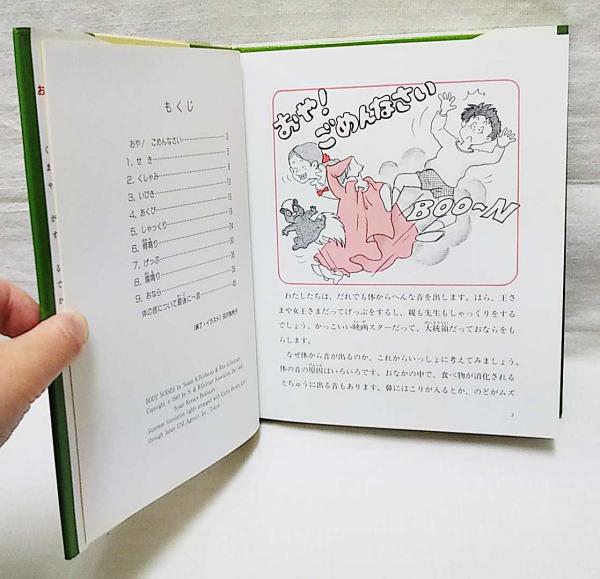 もくじ
おや! ごめんなさい 3
1. せき 5
2. くしゃみ 8
3. いびき 10
4. あくび
5. しゃっくり
6. 骨鳴り
7. げっぷ
8. 腹鳴り 36
9. おなら
体の音について最後に一言 45
BODY NOISES by Susan K.Buxbaum & Rita G.Gelman
Japanese translation rights arranged with Curtis Brown Ltd
through Japan UNI Agency, Inc., Tokyo
おや!
ごめんなさい
BOO〜N
わたしたちは、だれでも体からへんな音を出します。ほら、王さ
まや女王さまだってげっぷをするし、親も先生もしゃっくりをする
でしょう。かっこいい映画スターだって、大統領だっておならをも
らします。
なぜ体から音が出るのか、これからいっしょに考えてみましょう。
体の音の原因はいろいろです。おなかの中で、食べ物が消化される
とちゅうに出る音もあります。鼻にほこりが入るとか、のどがムズ
3